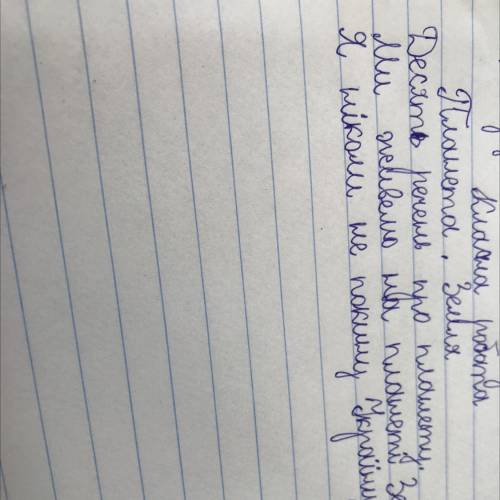 Класна робота
Планета Земля
Десять речень про планету.
Ми живемо на планеті
Я ніколи не покину